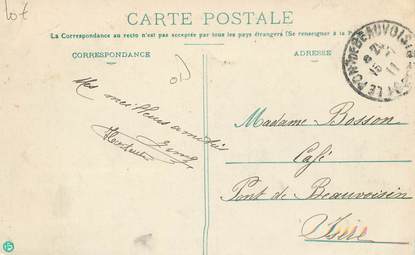 Lot
CARTE POSTALE
La Correspondance au recto n'est pas acceptée par tous les pays étrangers (Se renseigner à la P
CORRESPONDANCE
ADRESSE
Mes meilleures amitiés
Madame Bosson
Café
Pont de Beauvoisin
Isère